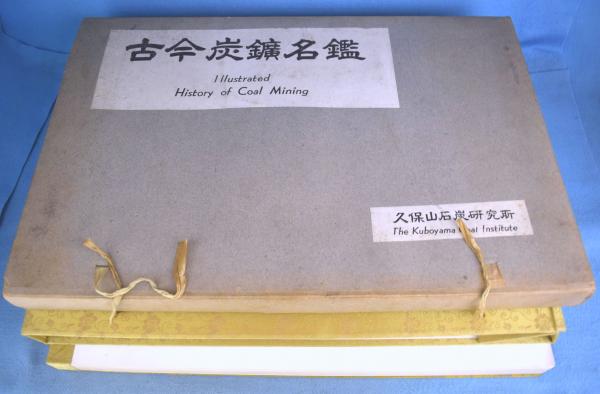 古今炭鑛名鑑
Illustrated
History of Coal Mining
久保山石炭研究所
The Kuboyama Coal Institute